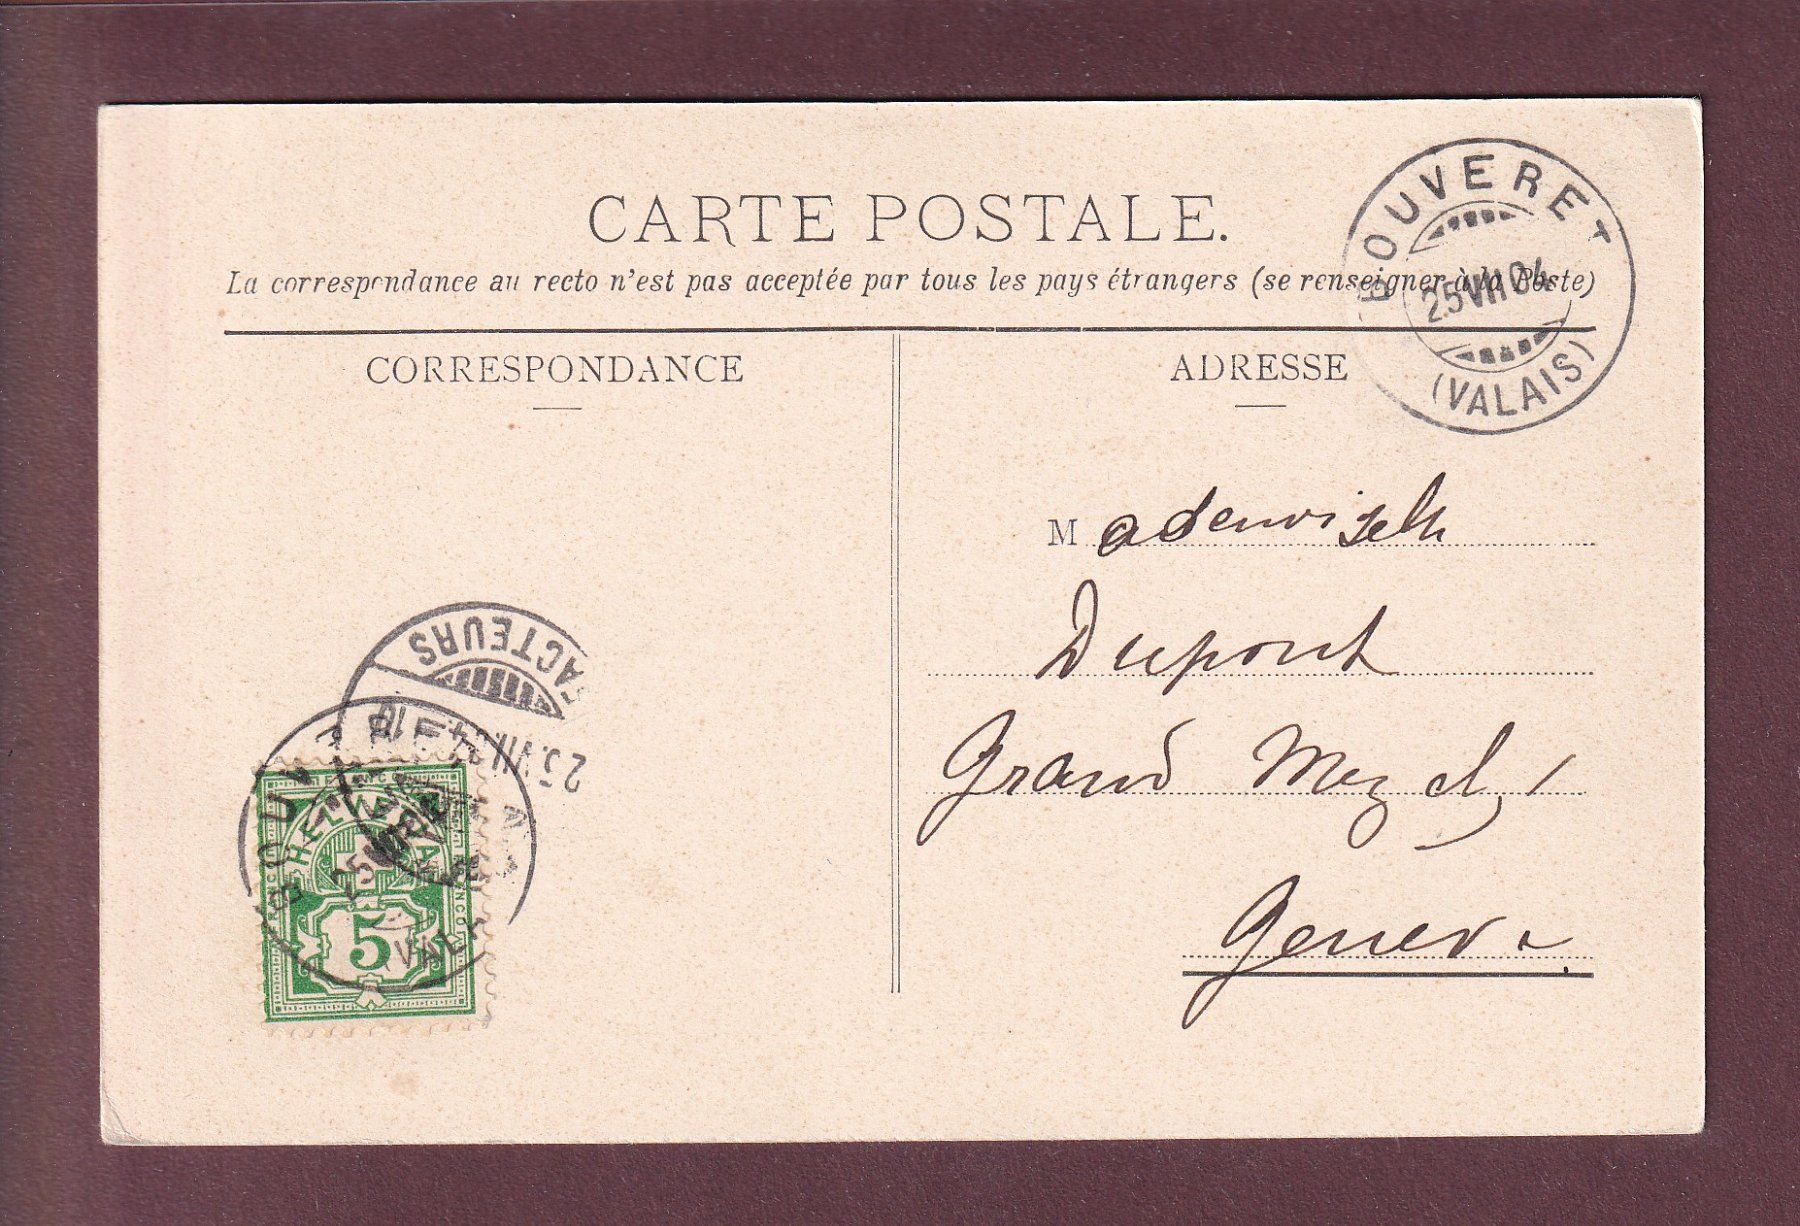 CARTE POSTALE.
La correspondance au recto n'est pas acceptée par tous les pays étrangers (se renseigner à la Poste)
BOUVERET
25 VII 04
(VALAIS)
CORRESPONDANCE
ADRESSE
Mademoiselle
Dupont
Grand Mezel, 1
Geneve.
FACTEURS
25.VII
BOUV
25
(VAL
HELVETIA
FRANCO
5